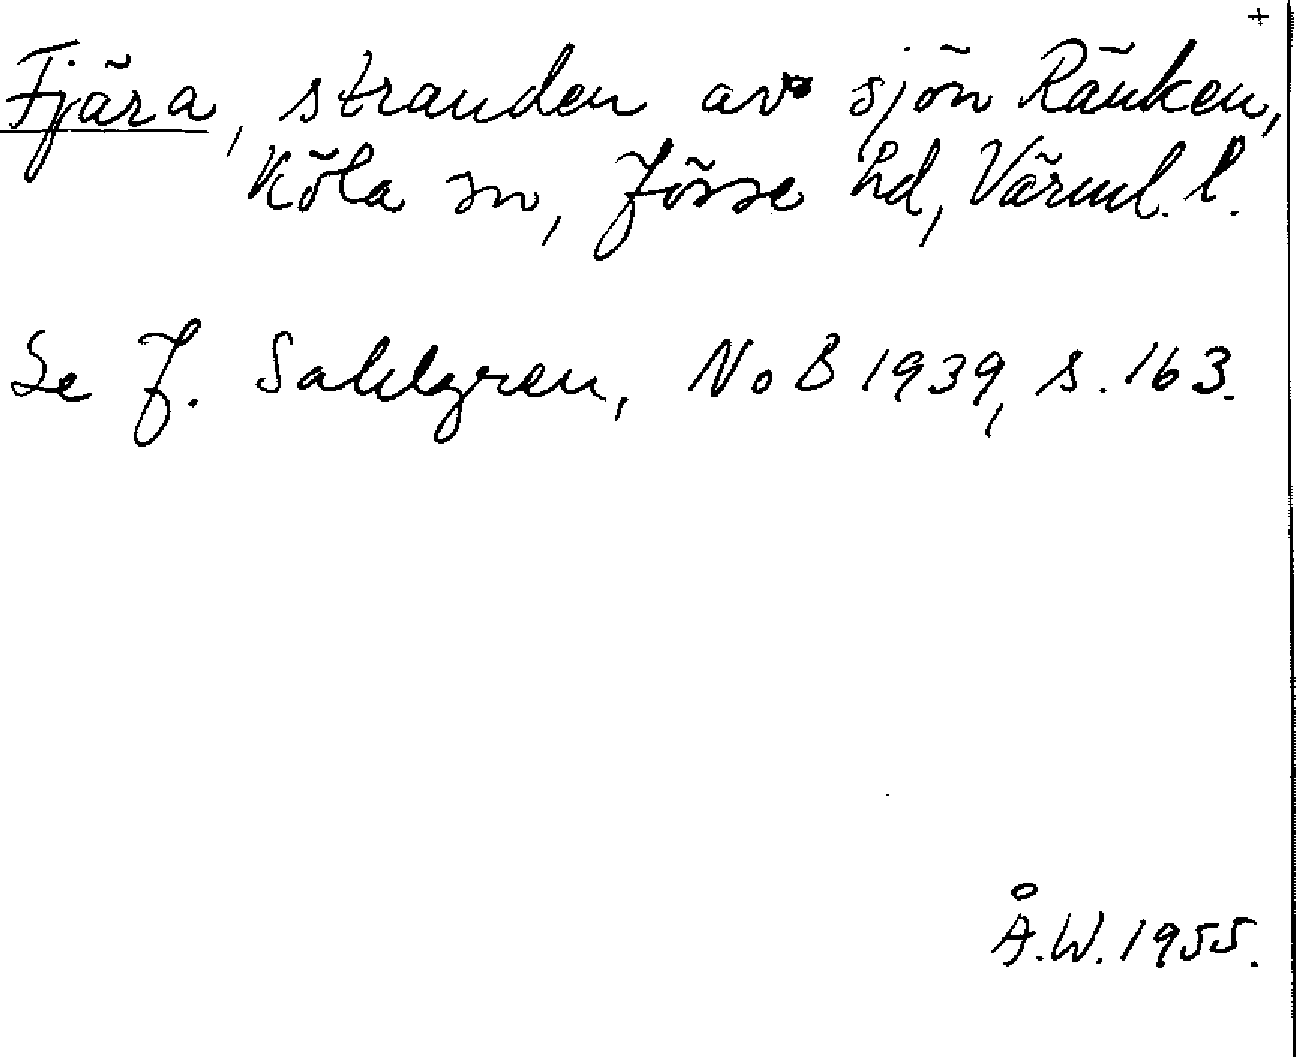 +
Fjära, stranden av sjön Ränken,
Köla sn, Jösse hd, Värml. l.
Se J. Sahlgren, NoB 1939, s. 163.
Å.W. 1955.